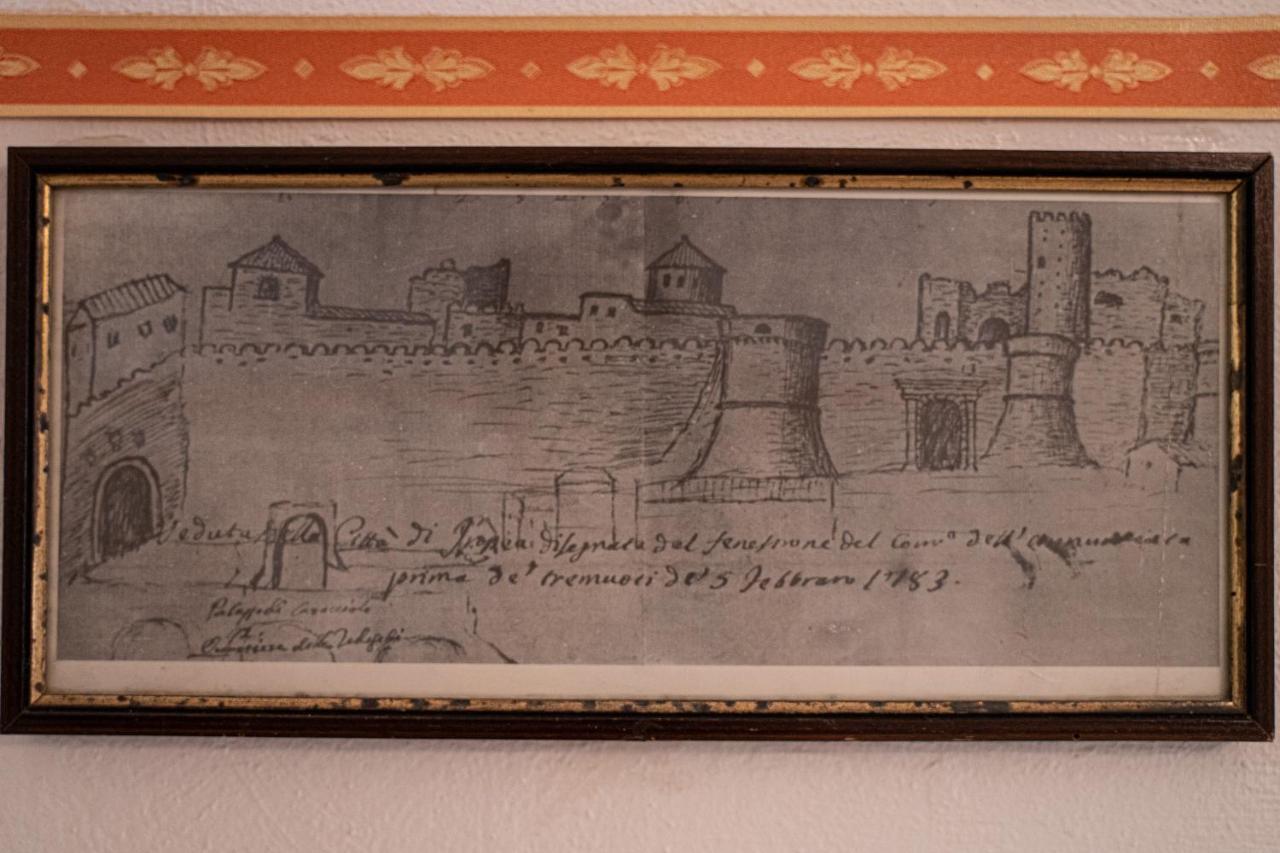 Veduta della Città di Tropea disegnata dal fenestrone del Conv.º dell' Annunciata
prima de' tremuoti de' 5 Febbraro 1783.
Palazzo di